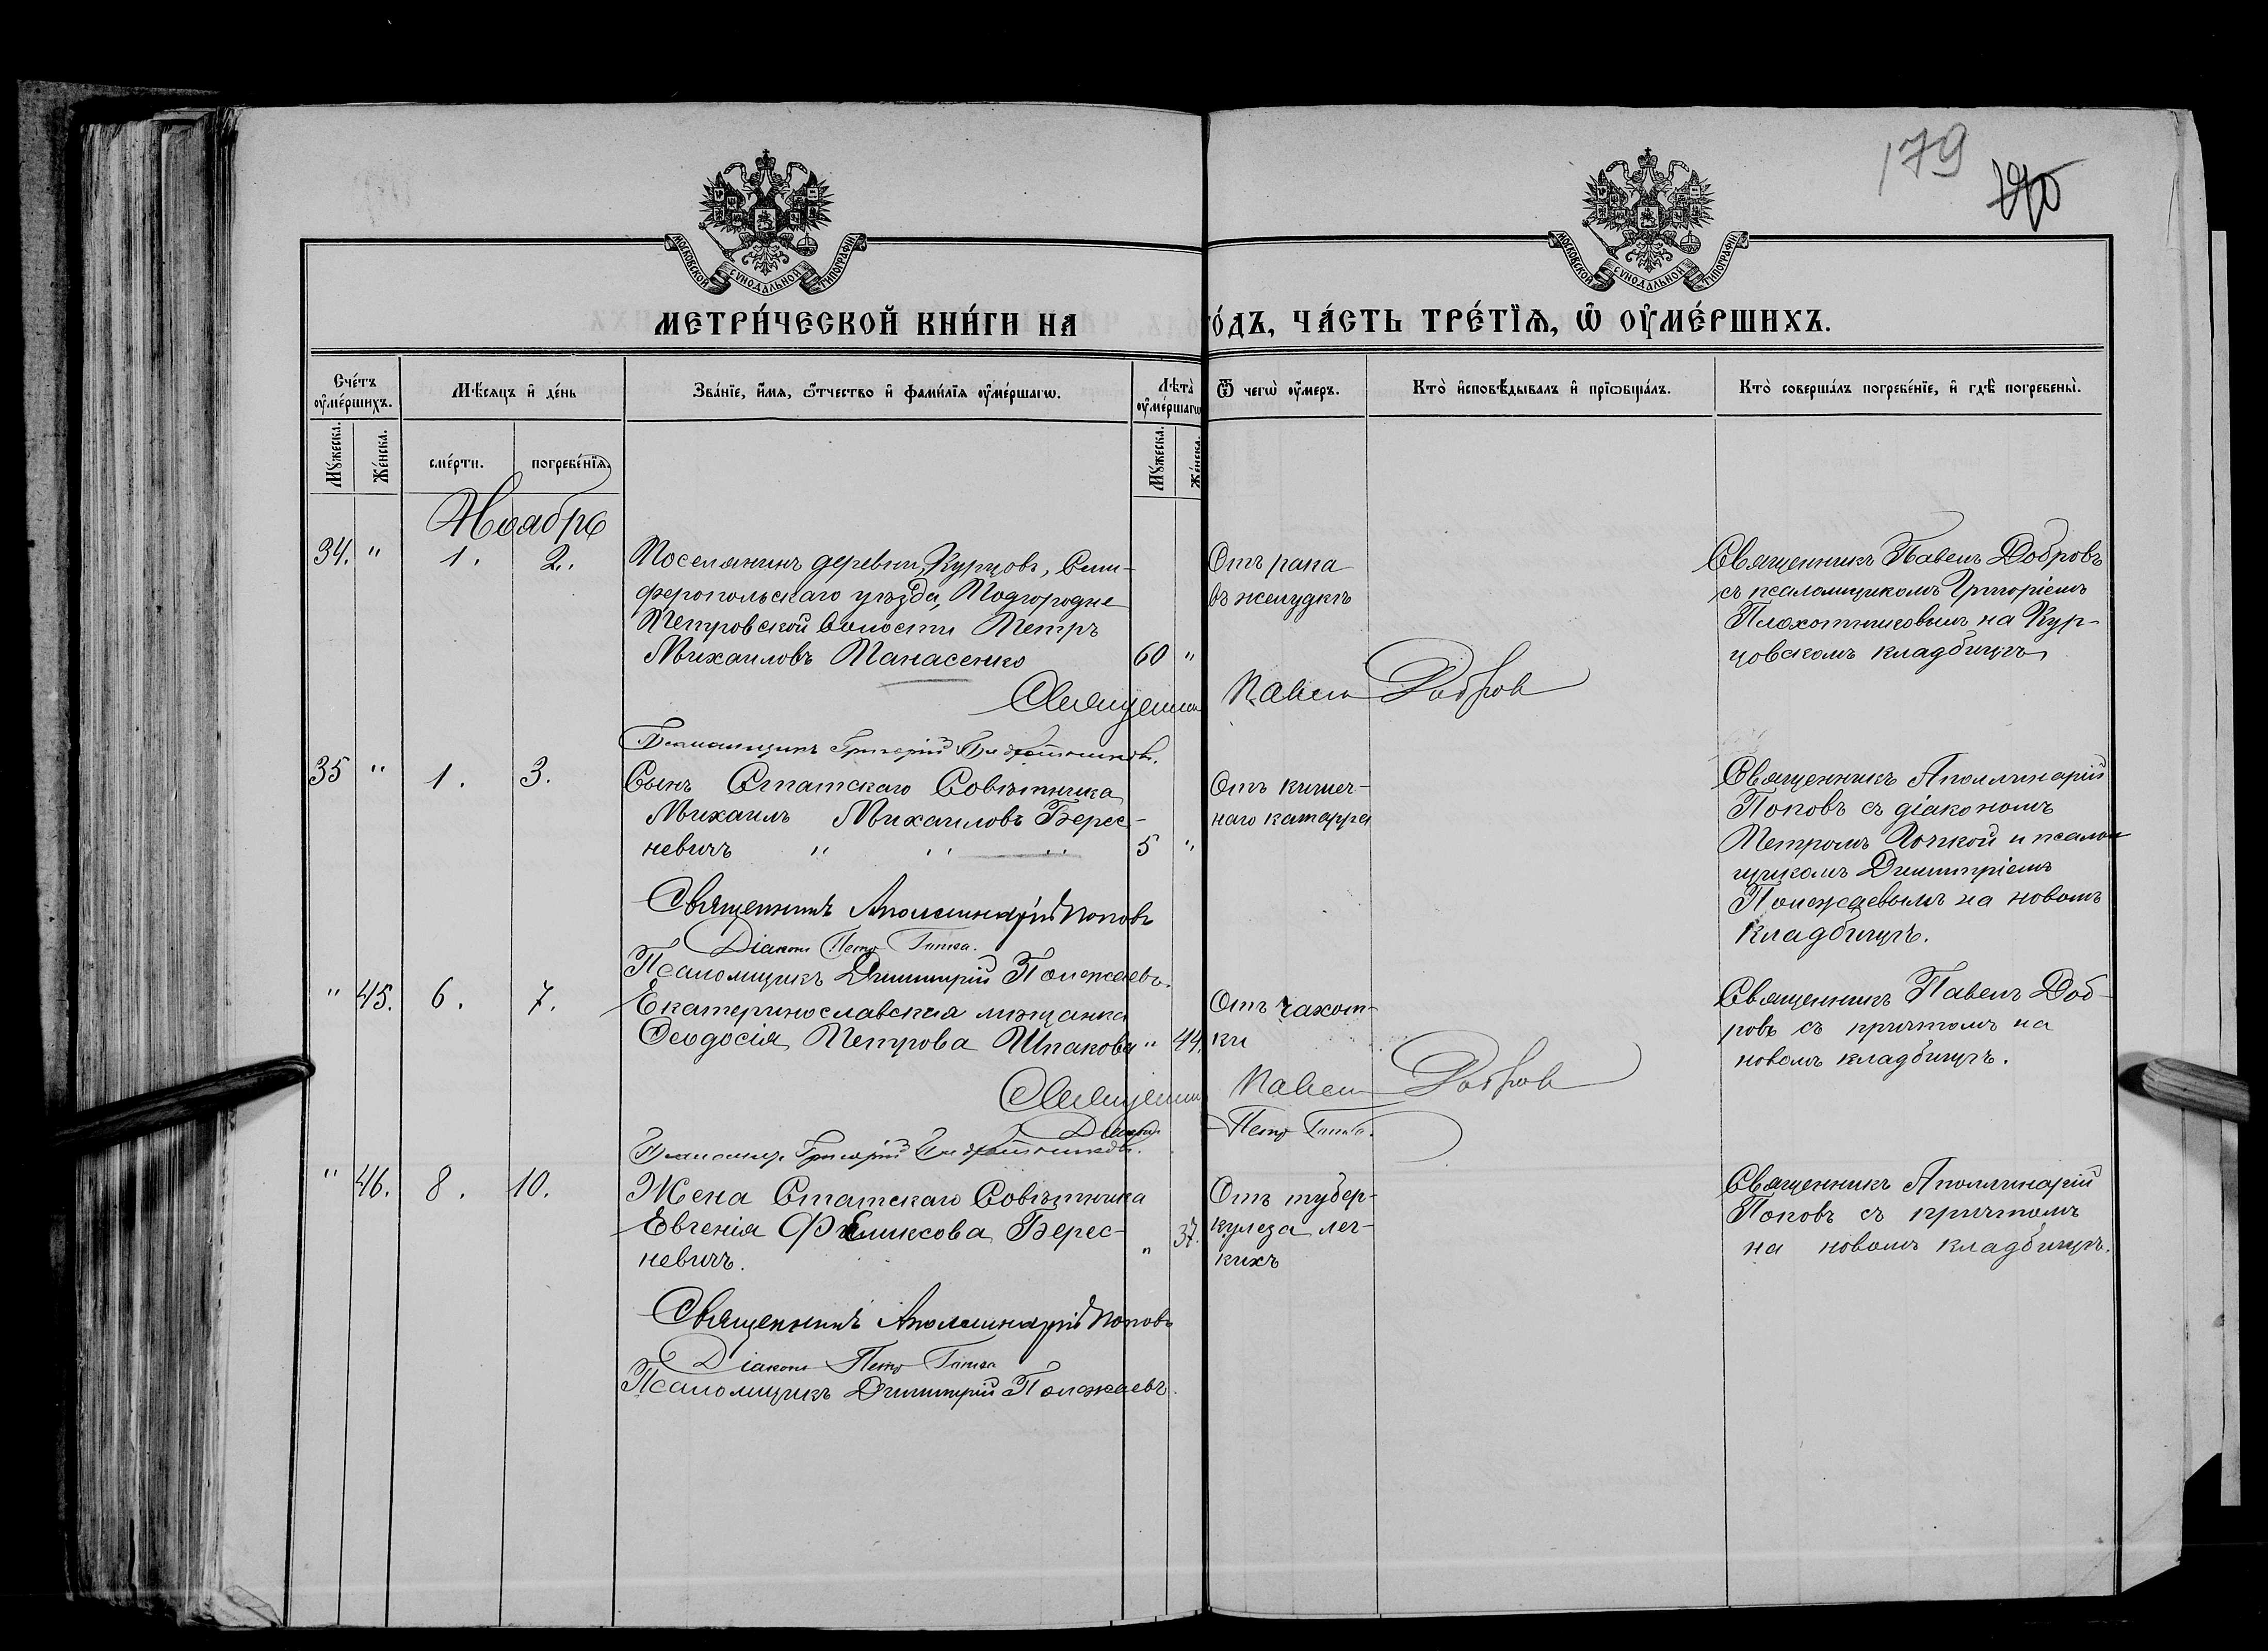 179
МОСКОВСКОЙ СѴНОДАЛЬНОЙ ТИПОГРАФІИ
МОСКОВСКОЙ СѴНОДАЛЬНОЙ ТИПОГРАФІИ
МЕТРИ́ЧЕСКОЙ КНИ́ГИ НА
го́дъ, ЧА́СТЬ ТРЕ́ТЇѦ, Ѡ҆ ОУ҆МЕ́РШИХЪ.
Сче́тъ оу҆ме́ршихъ.
Мѣ́сѧцъ и҆ де́нь
Зва́нїе, и҆́мѧ, ѻ҆́тчество и҆ фами́лїѧ оу҆ме́ршагѡ.
Лѣ́та оу҆ме́ршагѡ
Ѿ чегѡ̀ оу҆́меръ.
Кто̀ и҆сповѣ́дывалъ и҆ прїѡбща́лъ.
Кто̀ соверша́лъ погребе́нїе, и҆ гдѣ̀ погребены̀.
Мꙋ́жеска.
Же́нска.
сме́рти.
погребе́нїѧ.
Мꙋ́жеска.
Же́нска.
Ноябрь
34. " 1. 2.
Поселянинъ деревни Курцовъ, Сим-
феропольскаго уѣзда, Подгородне
Петровской волости Петръ
Михаиловъ Панасенко 60 "
Отъ рака
въ желудкѣ
Священникъ Павелъ Добровъ
съ псаломщикомъ Григоріемъ
Плохотниковымъ на Кур-
цовскомъ кладбищѣ
Священник Павелъ Добров
Псаломщикъ Григорій Плохотниковъ.
35 " 1. 3.
Сынъ Статскаго Совѣтника
Михаилъ Михаиловъ Берес-
невичъ " " " 5 "
Отъ кишеч-
наго катарра
Священникъ Аполлинарій
Поповъ съ діакономъ
Петромъ и псалом
щикомъ Димитріемъ
Полежаевымъ на новомъ
кладбищѣ.
Священникъ Аполлинарій Поповъ
Діаконъ Петръ
Псаломщикъ Димитрій Полежаевъ.
" 45. 6. 7.
Екатеринославская мѣщанка
Ѳеодосія Петрова Шпакова " 44.
Отъ чахот-
ки
Священникъ Павелъ Доб-
ровъ съ причтомъ на
новомъ кладбищѣ.
Священник Павелъ Добров
Діаконъ Петръ
Псаломщ. Григорій Плохотниковъ.
" 46. 8. 10.
Жена Статскаго Совѣтника
Евгенія Феликсова Берес-
невичъ. " 37.
Отъ тубер-
кулеза лег-
кихъ
Священникъ Аполлинарій
Поповъ съ причтомъ
на новомъ кладбищѣ.
Священникъ Аполлинарій Поповъ
Діаконъ Петръ
Псаломщикъ Димитрій Полежаевъ.